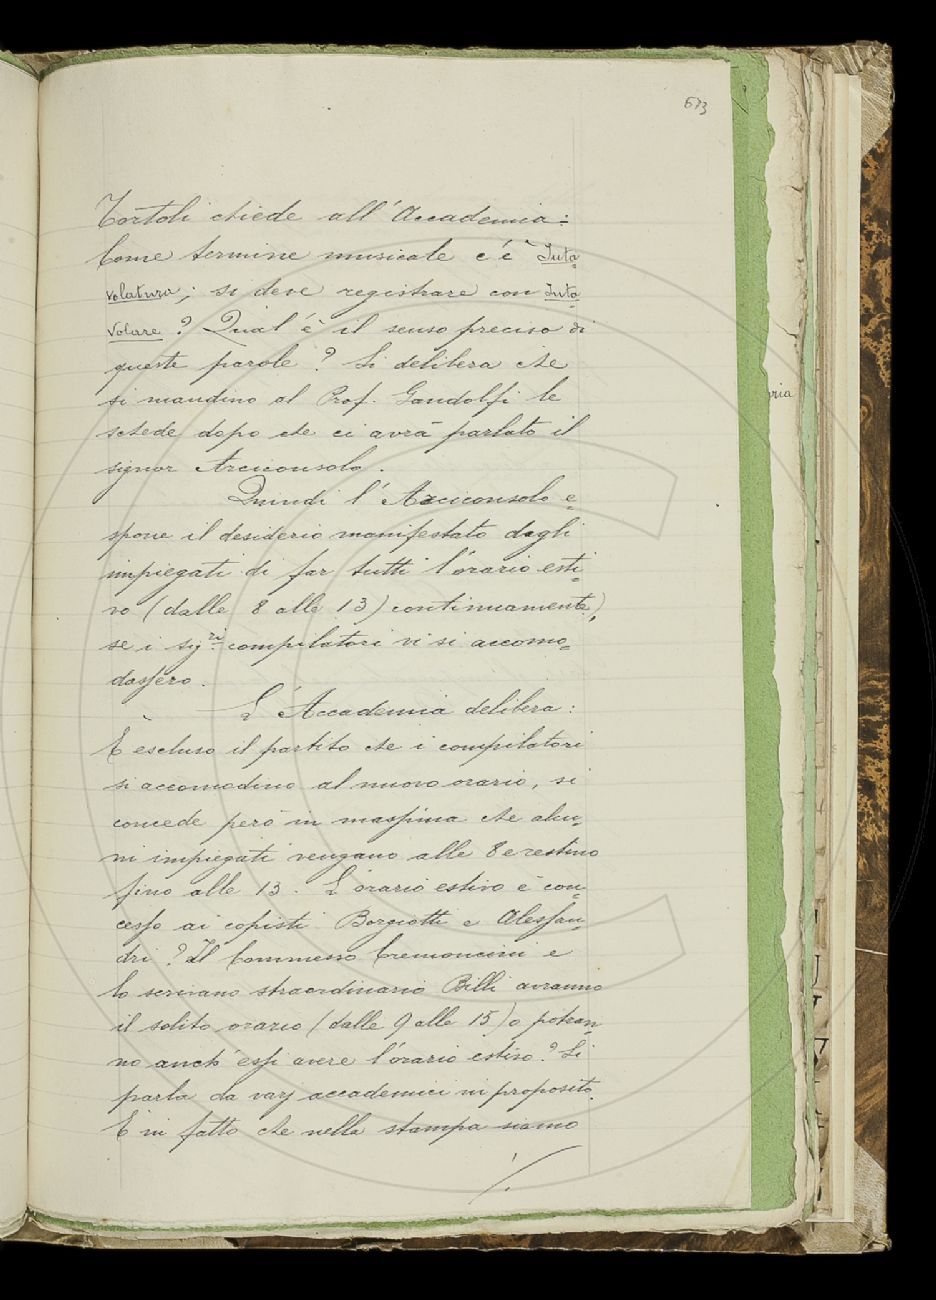 673
Tortoli chiede all'Accademia:
Come termine musicale c'è Inta=
volatura; si deve registrare con Inta=
volare? Qual'è il senso preciso di
queste parole? Si delibera che
si mandino al Prof. Gandolfi le
schede dopo che ci avrà parlato il
signor Arciconsolo.
Quindi l'Arciconsolo e=
spone il desiderio manifestato dagli
impiegati di far tutti l'orario esti=
vo (dalle 8 alle 13) continuamente,
se i sigri compilatori vi si accomo=
dassero.
L'Accademia delibera:
È escluso il partito che i compilatori
si accomodino al nuovo orario, si
concede però in massima che alcu=
ni impiegati vengano alle 8 e restino
fino alle 13. L'orario estivo è con=
cesso ai copisti Borgiotti e Alessan=
dri? Il Commesso Cremoncini e
lo scrivano straordinario Billi avranno
il solito orario (dalle 9 alle 15) o potran=
no anch'essi avere l'orario estivo? Si
parla da varj accademici in proposito.
È in fatto che nella stampa siamo
./.
ria